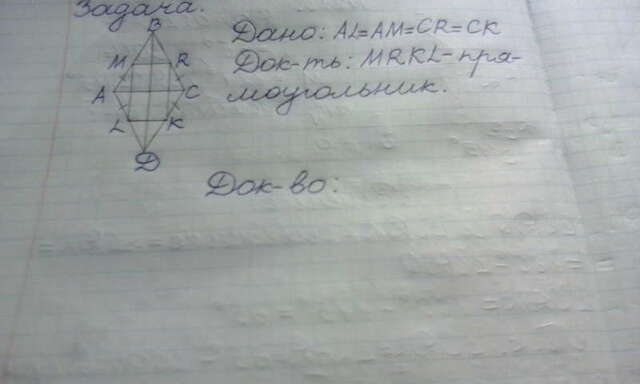 Задача.
Дано: AL=AM=CR=CK
Док-ть: MRKL-пря-
моугольник.
B
M R
A C
L K
D
Док-во: